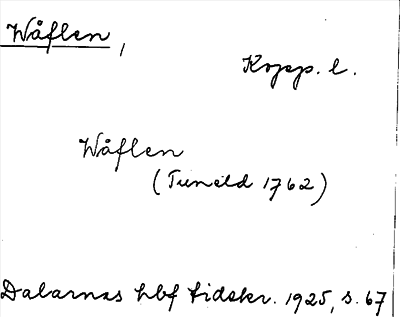 Wåflen,
Kopp. l.
Wåflen
(Tuneld 1762)
Dalarnas hbf tidskr. 1925, s. 67